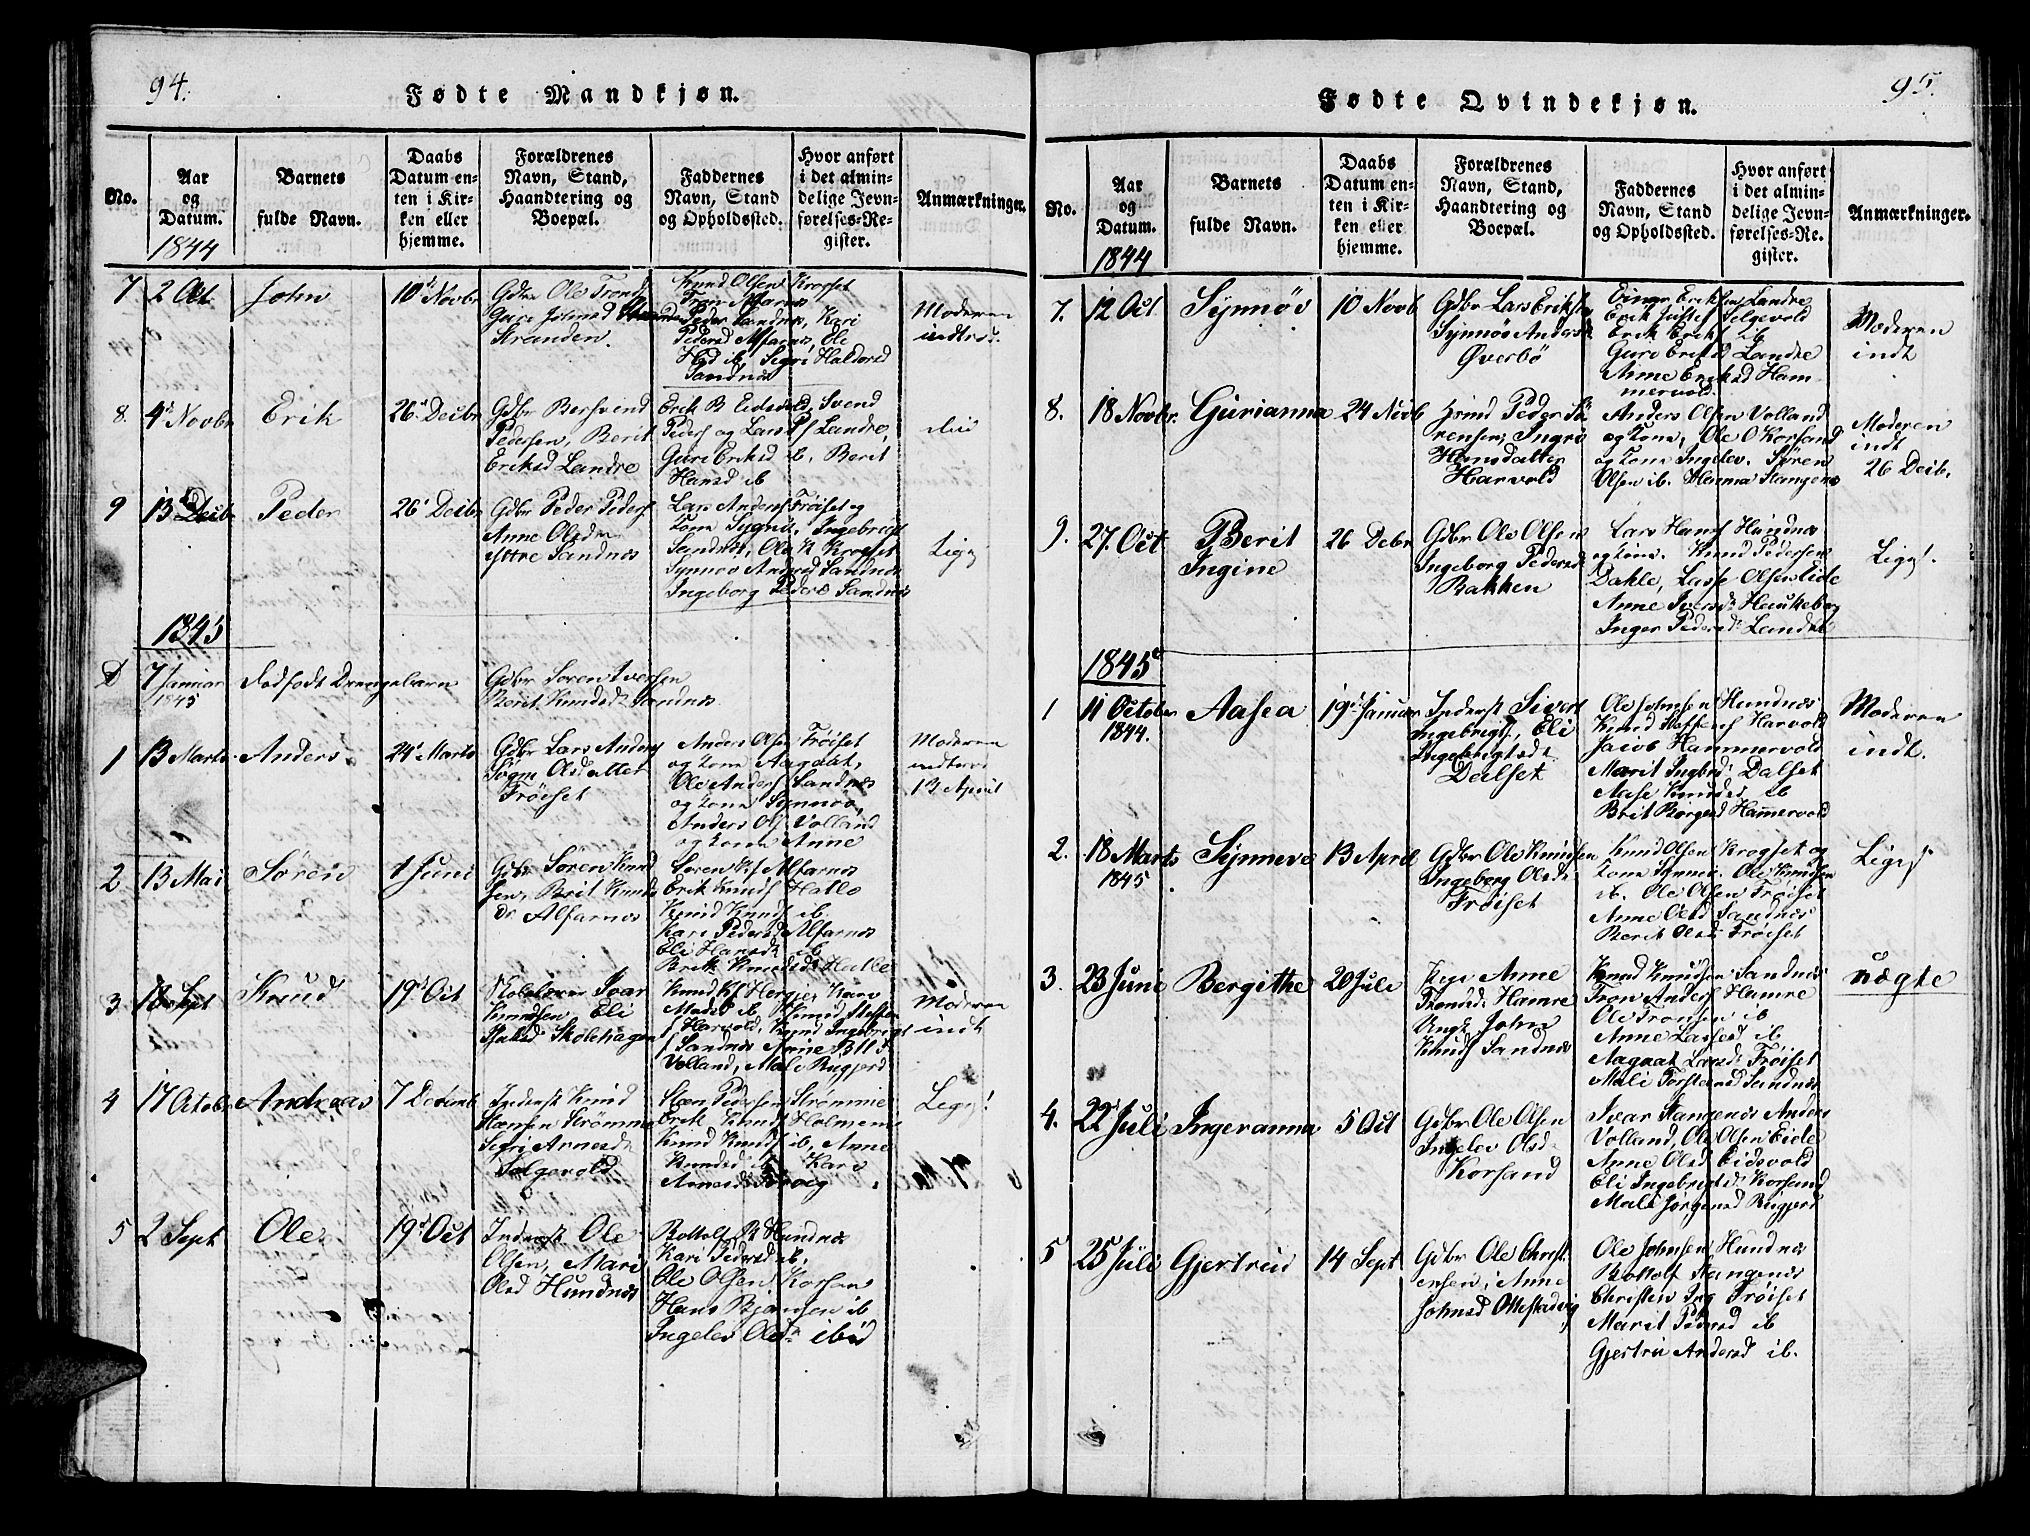 94.
Fødte Mandkjøn.
No.
Aar
og
Datum.
1844
Barnets
fulde Navn.
Daabs
Datum en-
ten i Kir-
ken eller
hjemme.
Forældrenes
Navn, Stand,
Haandtering og
Boepæl.
Faddernes
Navn, Stand
og Opholdssted.
Hvor anført
i det almin-
delige Jevn-
førelses-Re-
gister.
Anmærkninger.
7
2 Oct
John
10d Novbr
Gdbr Ole Trons
Guri Johnsd
Stranden.
Knud Olsen Krogset
Tron Alfarnæs
Peder Sandnæs, Kari
Pedersd Alfarnæs, Ole
ib. Sigri Haldorsd
Sandnæs
Moderen
8.
4d Novbr
Erik
26d Decbr
Gdbr Bersvend
Pedersen, Berit
Eriksd Landre
Erik B Eidsvold, Svend
Peders og Lars P Landre,
Guri Eriksd ib, Berit
Hansd ib
9
13d Decbr
Peder
26d Decbr
Gdbr Peder Peders
Anne Olsdr
Yttre Sandnæs
Lars Anders Frøiset og
Kone Sygni, Ingebrigt
Sandnæs, Ole K Krogset
Synnøv Andersd Sandnæs
Ingeborg Peders Sandnæs
Liges
1845
D
7 Januar
1845
dødfødt Drengebarn
Gdbr Søren Iversen
Berit Knudsd Sandnæs
1
13 Marts
Anders
24d Marts
Gdbr Lars Anders
Sygni Olsdatter
Frøiset
Anders Olsen Frøiset
og Kone Aagaat,
Ole Anders Sandnæs
og Kone Synnøv,
Anders Ols Volland
og Kone Anne
Moderen
13 April
2
13 Mai
Søren
1 Juni
Gdbr Søren Knud
sen, Berit Knuds
dr Alfarnæs
Søren K Alfarnæs
Erik Knuds Hatle
Knud Knuds ib
Kari Pedersd Alfarnæs
Eli Hansdr ib
Berit Knudsdr Hatle
3
Sept
Knud
19d Oct
Skolelærer Ivar
Knudsen Eli
Skolehagen
Knud K Herje, Kari
Madsd ib Knud Steffen
s Harvold, Knud Ingebrigt
s Sandnæs Anne
Volland, Mali Rugjerd
Moderen
indt
4
17 Octobr
Andreas
7 Decembr
Inderst Knud
Hansen Strømme
Sigri Arnesdr
Selgevold
Hans Pedersen Strømme
Erik Knuds Holmem
Knud Knuds ib, Anne
Knudsd ib Kari
Arnesd
Liges!
5
2 Sept
Ole
19d Oct
Inderst Ole
Olsen, Mari
Olsd Hundnæs
Bottolf B Hundnæs
Kari Pedersd ib,
Ole Olsen Korsan
Hans Bjønsen ib
Ingelev Olsdr ibid
95.
Fødte Qvindekjøn.
No.
Aar
og
Datum.
1844
Barnets
fulde Navn.
Daabs
Datum en-
ten i Kir-
ken eller
hjemme.
Forældrenes
Navn, Stand,
Haandtering og
Boepæl.
Faddernes
Navn, Stand
og Opholdssted.
Hvor anført
i det almin-
delige Jevn-
førelses-Re-
gister.
Anmærkninger.
7.
12 Oct
Synnøv
10 Novb
Gdbr Lars Eriksen
Synnøv Andersd
Øverbø
Einar Eriksen Landre
Erik Selgevold
Erik Eriks ib
Guri Eriksd Landre
Anne Eriksd Ham-
mervold.
Moderen
indt
8.
18 Novbr.
Gurianna
24 Novb
Peder Sø
rensen, Ingri
Hansdatter
Harvold
Anders Olsen Volland
og Kone, Ole O Korsand
og Kone Ingelev. Søren
Olsen ib. Hanna Stangenæs
Moderen
indt
26 Decb.
9.
27. Oct
Berit
Ingine
26 Debr
Gdbr Ole Olsen
Ingeborg Pedersd
Bakken
Lars Hans Hundnæs
og Kone. Knud Pedersen
Dahle, Lasse Olsen Eide
Anne Iversdr Haukebøg
Inger Pedersdr Landre
Liges.
1845
1
11 October
1844.
Aasea
19d Januar
Inderst Sivert
Ingebrigts, Eli
Ingebrigtsdr
Dalset
Ole Johnsen Hundnæs
Knud Steffens Harvold
Jacob Hammervold
Marit Ingbrd Dalset
Aase Knudsd ib
Brit Børgesd Hammervold
Moderen
indt.
2.
18 Marts
1845
Synneve
13 April
Gdbr Ole Knudsen
Ingeborg Olsdr
Frøiset
Knud Olsen Krogset og
Kone Synnev. Ole Knudsen
ib. Ole Olsen Frøiset
Anne Olsd Sandnæs
Berit Olsd Frøiset
Liges
3.
23 Juni
Bergithe
20 Juli
Pige Anne
Tronsd. Hamre
Ungk John
Knuds Sandnæs
Knud Knudsen Sandnæs
Tron Anders Hamre
Ole Tronsen ib
Anne Lassed ib
Aagaat Larsdr Frøiset
Mali Torstensd Sandnæs
uægte
4.
22 Juli
Ingeranna
5 Oct
Gdbr Ole Olsen
Ingelev Olsd
Korsand
Ivar Stangenæs Anders
Volland, Ole Olsen Eide
Anne Olsd Eidsvold
Eli Ingebrigtsd Korsand
Mali Jørgensd Rugjerd
5
25 Juli
Gjertrud
14 Sept
Gdbr Ole Christ
ensen, Anne
Johnsd Ottestadvig
Ole Johnsen Hundnæs
Bottolf Stangenæs
Christen Ing Frøiset
Marit Pedersd ib
Gjertru Andersd ib.